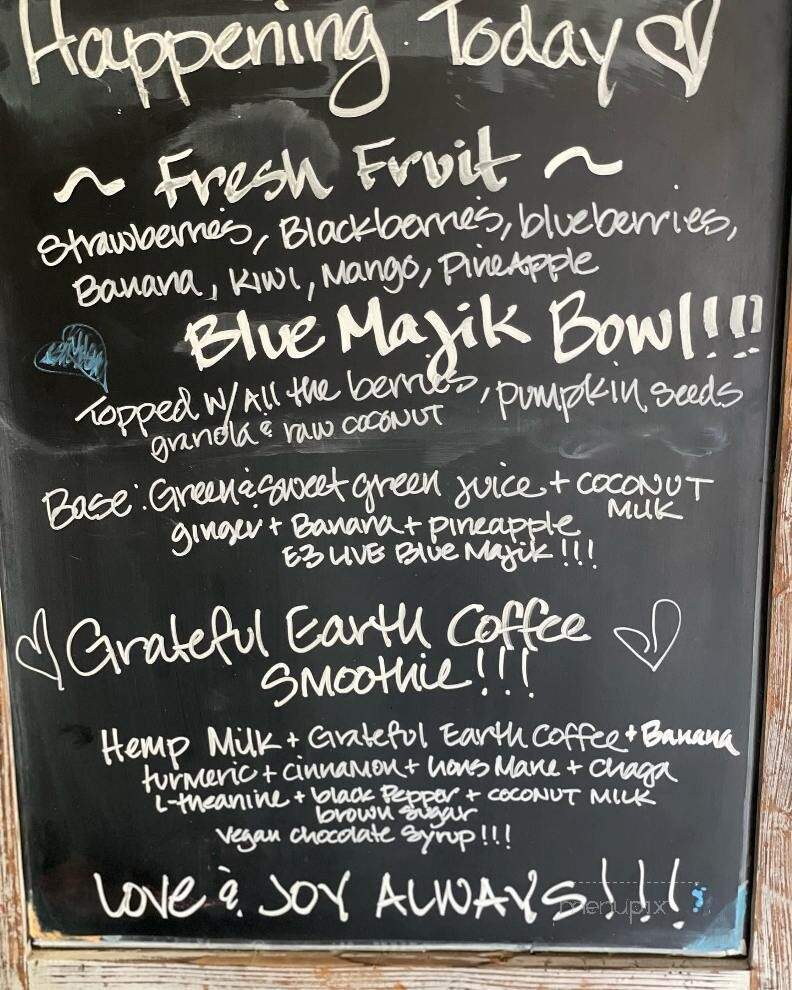 Happening Today
~ Fresh Fruit ~
Strawberries, Blackberries, blueberries,
Banana, Kiwi, Mango, PineApple
Blue Majik Bowl!!!
Topped w/ All the berries, pumpkin seeds
granola & raw coconut
Base: Green & Sweet green juice + COCONUT
MILK
ginger + Banana + pineapple
E3 LIVE Blue Majik!!!
Grateful Earth Coffee
Smoothie!!!
Hemp Milk + Grateful Earth Coffee + Banana
turmeric + cinnamon + Lions Mane + Chaga
L-theanine + black Pepper + COCONUT MILK
brown sugar
Vegan chocolate Syrup!!!
LOVE & JOY ALWAYS!!!!
menupix